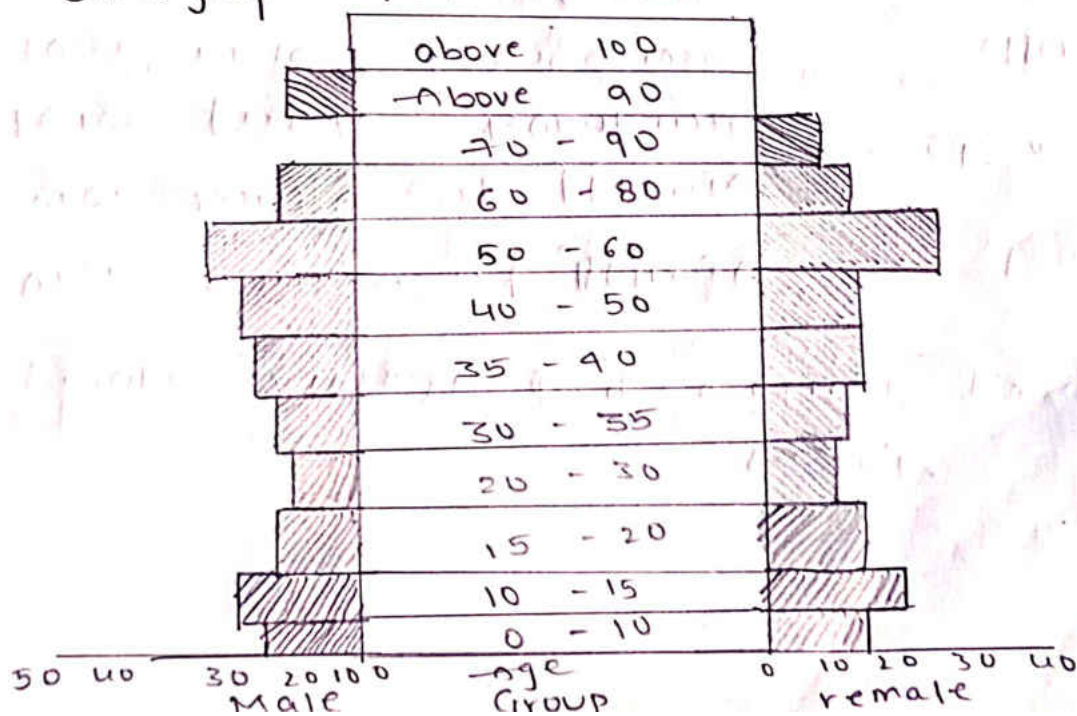 above 100
Above 90
70 - 90
60 - 80
50 - 60
40 - 50
35 - 40
30 - 35
20 - 30
15 - 20
10 - 15
0 - 10
50 40 30 20 10 0 Age 0 10 20 30 40
Male Group Female